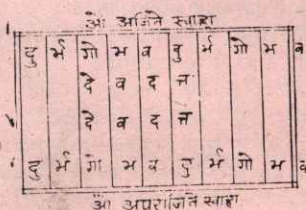 ओं अजिते स्वाहा
दु र्भ गो भ व दु र्भ गो भ व
दे व द त्त
दे व द त्त
दु र्भ गो भ व दु र्भ गो भ व
ओं अपराजिते स्वाहा